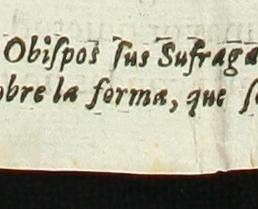 Obiſpos ſus Sufraga
obre la forma, que ſe